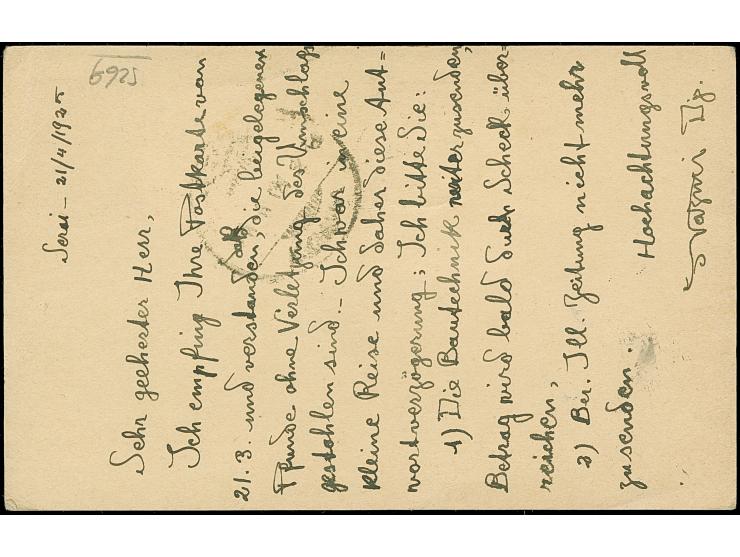 6925
21/4/1925
Sehr geehrter Herr,
Ich empfing Ihre Postkarte von
21.3. und verstanden, daß die beigelegenen
Pfunde ohne Verletzung des Umschlags
gestohlen sind. - Ich war in eine
kleine Reise und daher diese Ant=
wortverzögerung; Ich bitte Sie:
1) Die Bautechnik weiterzusenden,
Betrag wird bald durch Scheck über=
reichen,
2) Ber. Ill. Zeitung nicht mehr
zusenden.
Hochachtungsvoll